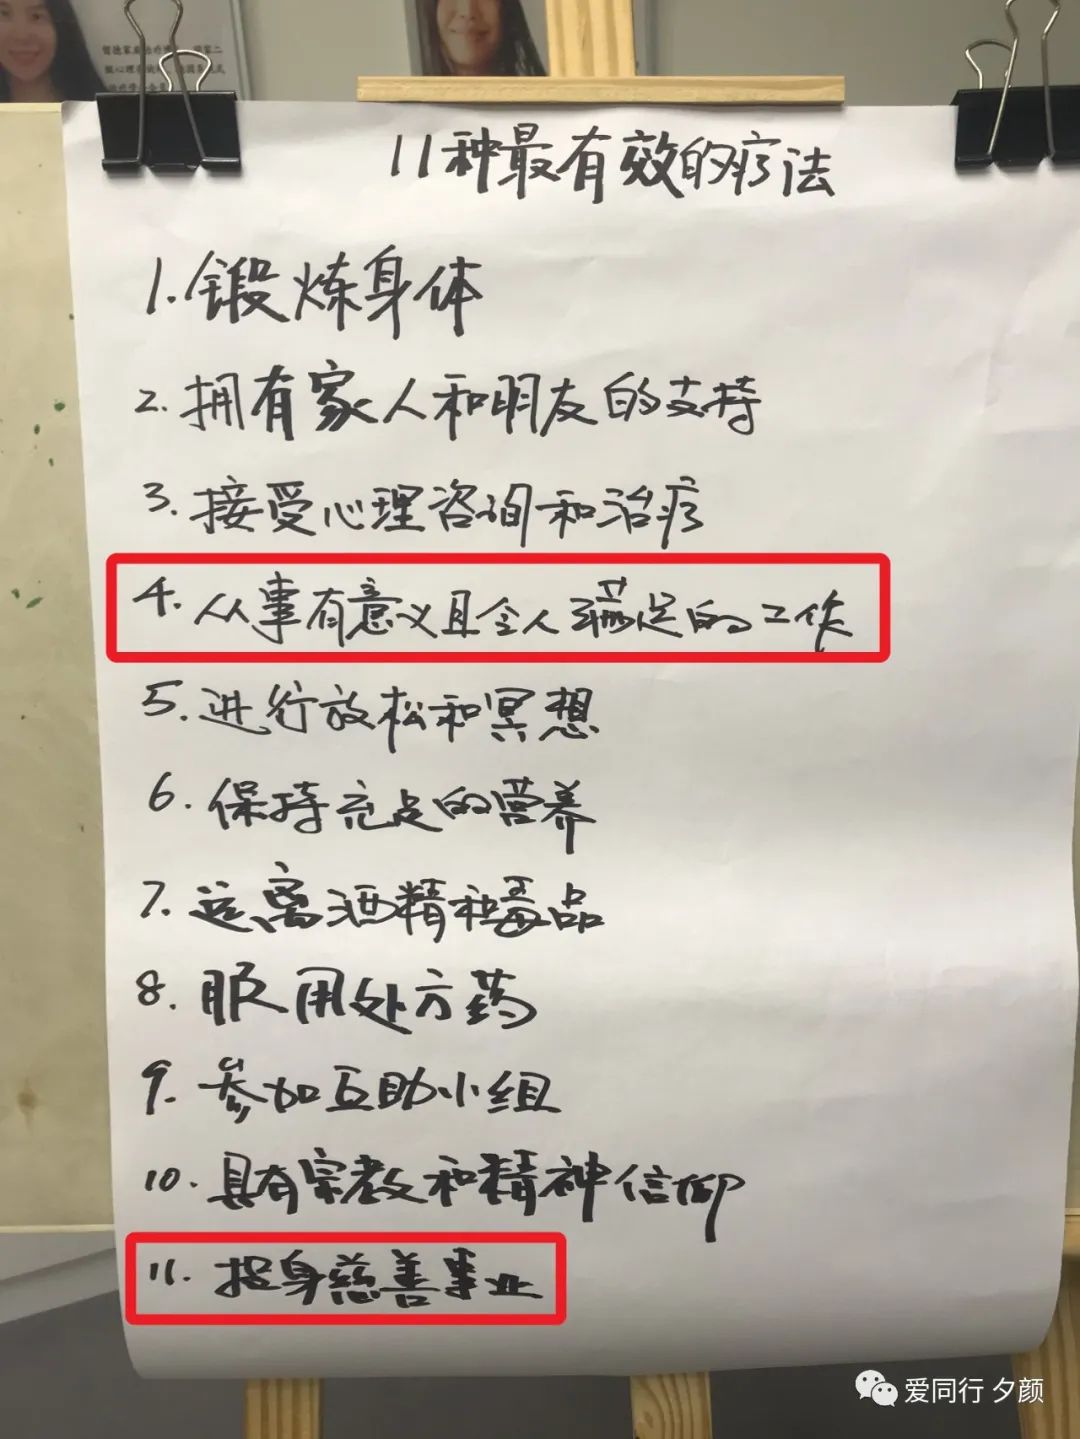 11种最有效的疗法
1.锻炼身体
2.拥有家人和朋友的支持
3.接受心理咨询和治疗
4.从事有意义且令人满足的工作
5.进行放松和冥想
6.保持充足的营养
7.远离酒精和毒品
8.服用处方药
9.参加互助小组
10.具有宗教和精神信仰
11.投身慈善事业
爱同行 夕颜